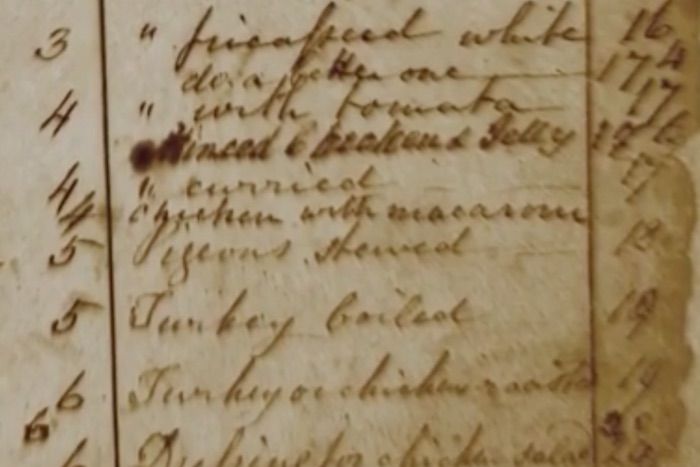 3 " fricasseed white 16
do. a better one 174
4 " with tomata 17
Minced Chicken & Jelly
4 " curried 17
4 Chicken with macaroni
5 Pigeons stewed 18
5 Turkey boiled 19
6 Turkey or chicken roasted 19
6
6 for chicken salad